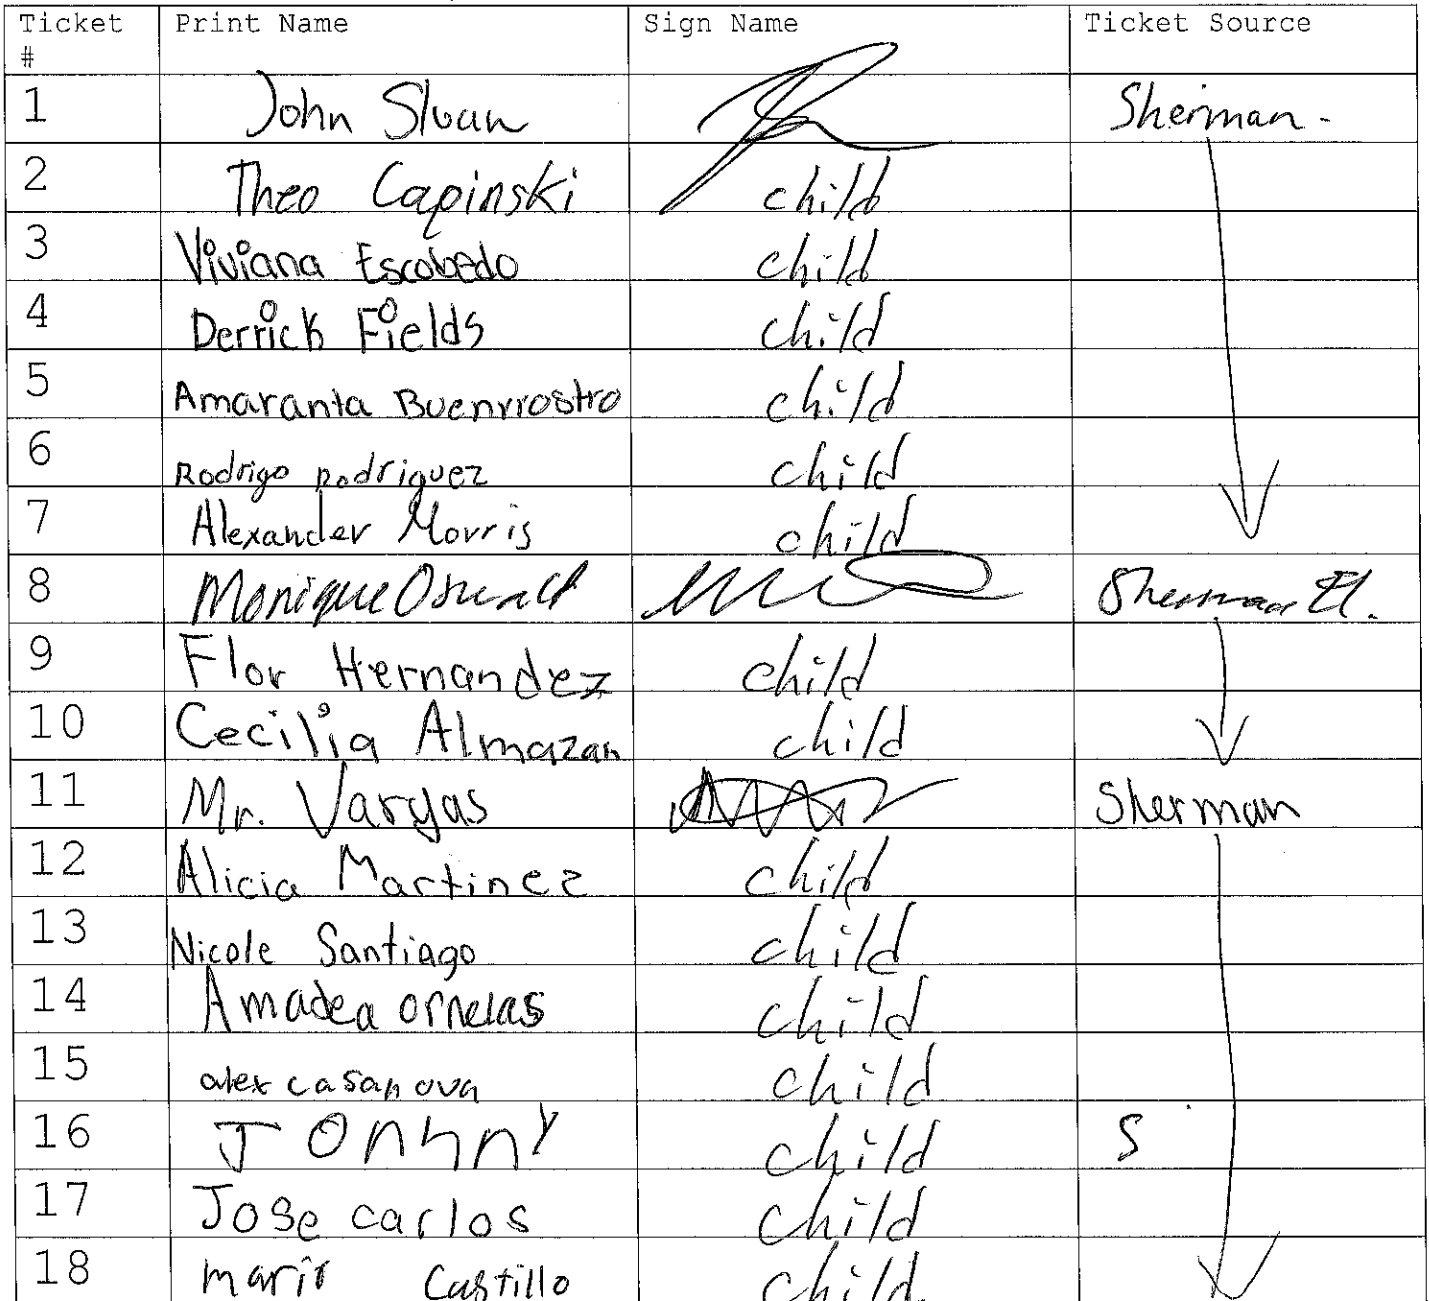 Ticket # Print Name Sign Name Ticket Source
1 John Sloan Sherman -
2 Theo Capinski child
3 Viviana Escobedo child
4 Derrick Fields child
5 Amaranta Buenrrostro child
6 Rodrigo Rodriguez child
7 Alexander Morris child
8 Monique Oswald Sherman El.
9 Flor Hernandez child
10 Cecilia Almazan child
11 Mr. Vargas Sherman
12 Alicia Martinez child
13 Nicole Santiago child
14 Amadea ornelas child
15 alex casanova child
16 Jonhny child S
17 Jose carlos child
18 Castillo child